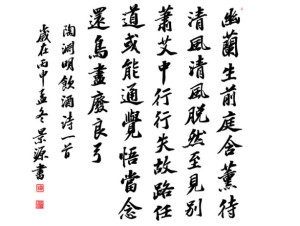 幽蘭生前庭含薰待
清風清風脫然至見別
蕭艾中行行失故路任
道或能通覺悟當念
還鳥盡廢良弓
陶淵明飲酒詩一首
歲在丙申孟冬景源書